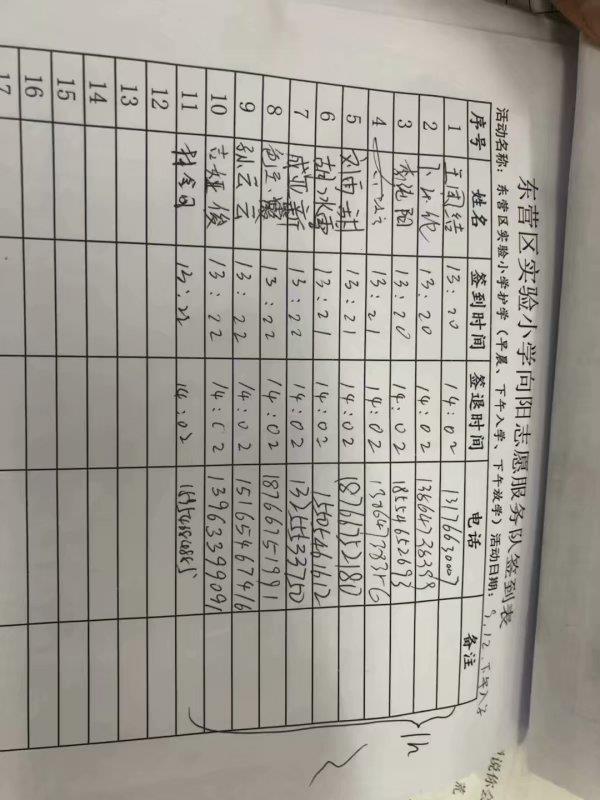 东营区实验小学向阳志愿服务队签到表
活动名称：东营区实验小学护学（早晨、下午入学、下午放学）活动日期：9.12.下午入学
序号 姓名 签到时间 签退时间 电话 备注
1 王团结 13:20 14:02 13176630007
2 13:20 14:02 13864738398
3 13:20 14:02 18554652693
4 13:21 14:02
5 刘雨 13:21 14:02 18766752180
6 胡冰雪 13:21 14:02 1505461612
7 成亚新 13:22 14:02 13255533750
8 13:22 14:02 18766751991
9 孙云云 13:22 14:02 15765467416
10 吉娅俊 13:22 14:02 13963399091
11 13:22 14:02
12
13
14
15
16
17
1h
说你会